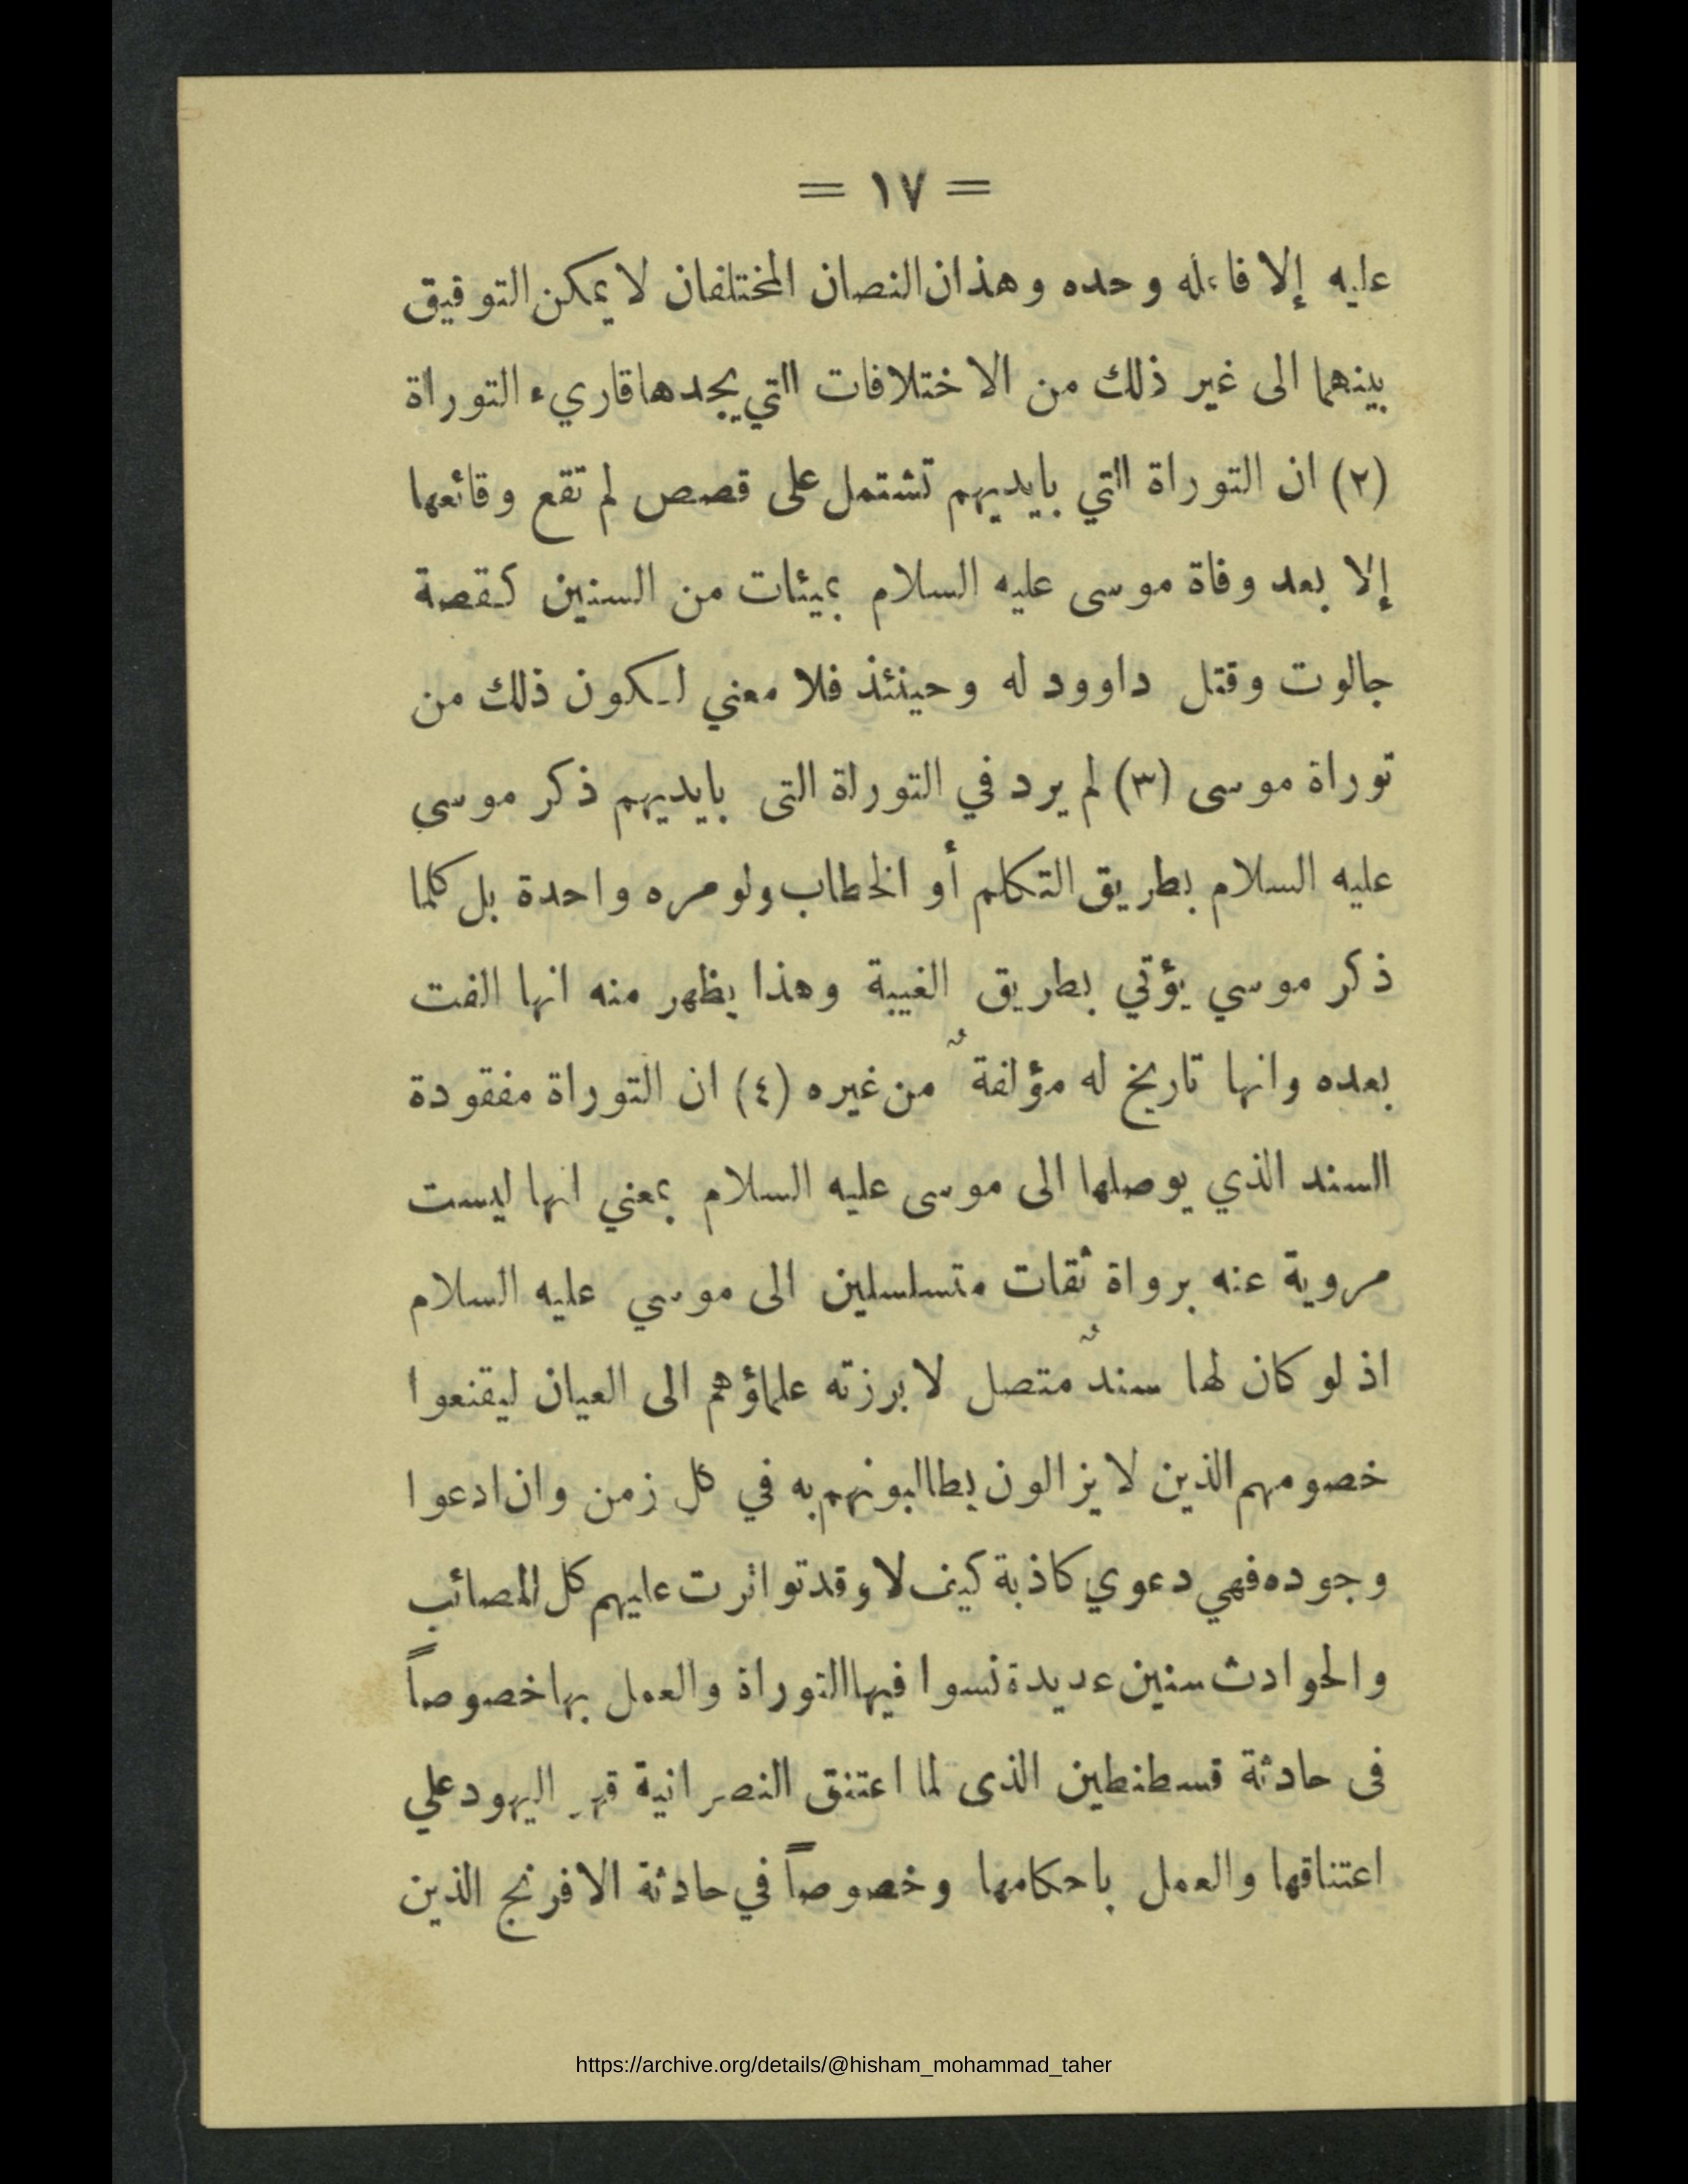 = ١٧ =
عليه إلا فاعله وحده وهذان النصان المختلفان لا يمكن التوفيق
بينهما الى غير ذلك من الاختلافات التي يجدها قاريء التوراة
(٢) ان التوراة التي بايديهم تشتمل على قصص لم تقع وقائعها
إلا بعد وفاة موسى عليه السلام بميئات من السنين كقصة
جالوت وقتل داوود له وحينئذ فلا معني لكون ذلك من
توراة موسى (٣) لم يرد في التوراة التى بايديهم ذكر موسي
عليه السلام بطريق التكلم أو الخطاب ولو مره واحدة بل كلما
ذكر موسي يؤتي بطريق الغيبة وهذا يظهر منه انها الفت
بعده وانها تاريخ له مؤلفةٌ من غيره (٤) ان التوراة مفقودة
السند الذي يوصلها الى موسى عليه السلام بمعني انها ليست
مروية عنه برواة ثقات متسلسلين الى موسي عليه السلام
اذ لو كان لها سندٌ متصل لابرزته علماؤهم الى العيان ليقنعوا
خصومهم الذين لا يزالون يطالبونهم به في كل زمن وان ادعوا
وجوده فهي دعوي كاذبة كيف لا وقد تواترت عليهم كل المصائب
والحوادث سنين عديدة نسوا فيها التوراة والعمل بها خصوصاً
فى حادثة قسطنطين الذى لما اعتنق النصرانية قهر اليهود علي
اعتناقها والعمل باحكامها وخصوصاً في حادثة الافرنج الذين
https://archive.org/details/@hisham_mohammad_taher